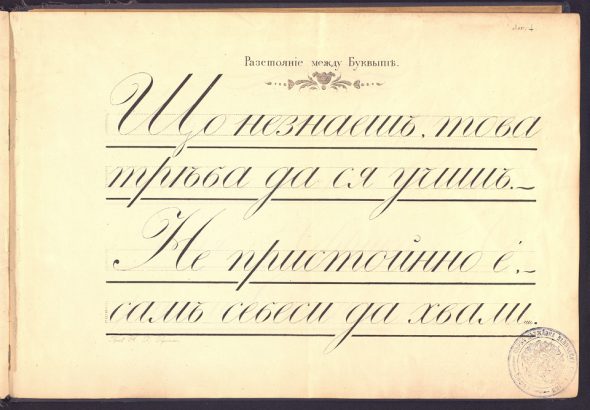 Разстояніе между Буквытѣ.
Що незнаешъ, това
трѣба да ся учишъ._
Не пристойнно é,_
самъ себеси да хвали...